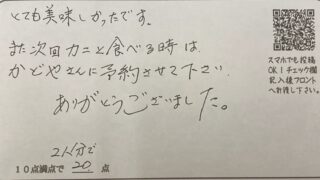 とても美味しかったです。
また次回カニを食べる時は、
かどやさんに予約させて下さい
ありがとうございました。
2人分で
10点満点で 20 点
スマホでも投稿
OK！チェック欄
記入後フロント
へお渡し下さい。